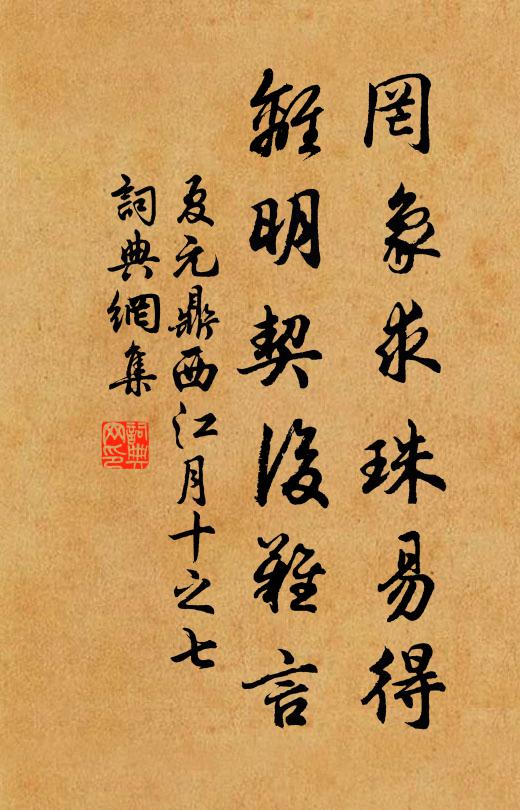 罔象求珠易得
離明契後難言
夏元鼎西江月十之七
詞典網集
詞典
网印